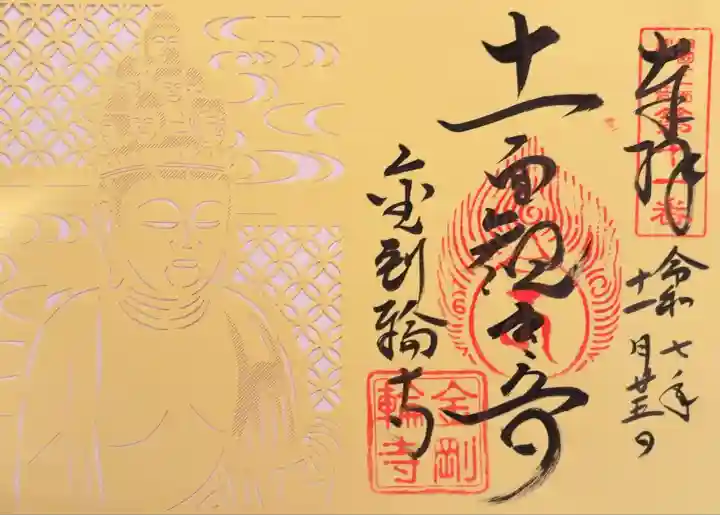 奉拝
令和七年
十一月廿五日
十一面観世音
金剛輪寺
金剛
輪寺